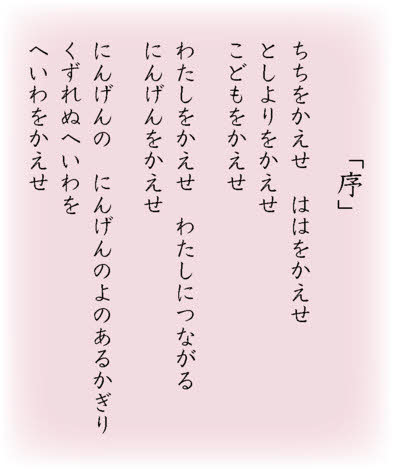 「序」
ちちをかえせ　ははをかえせ
としよりをかえせ
こどもをかえせ
わたしをかえせ　わたしにつながる
にんげんをかえせ
にんげんの　にんげんのよのあるかぎり
くずれぬへいわを
へいわをかえせ